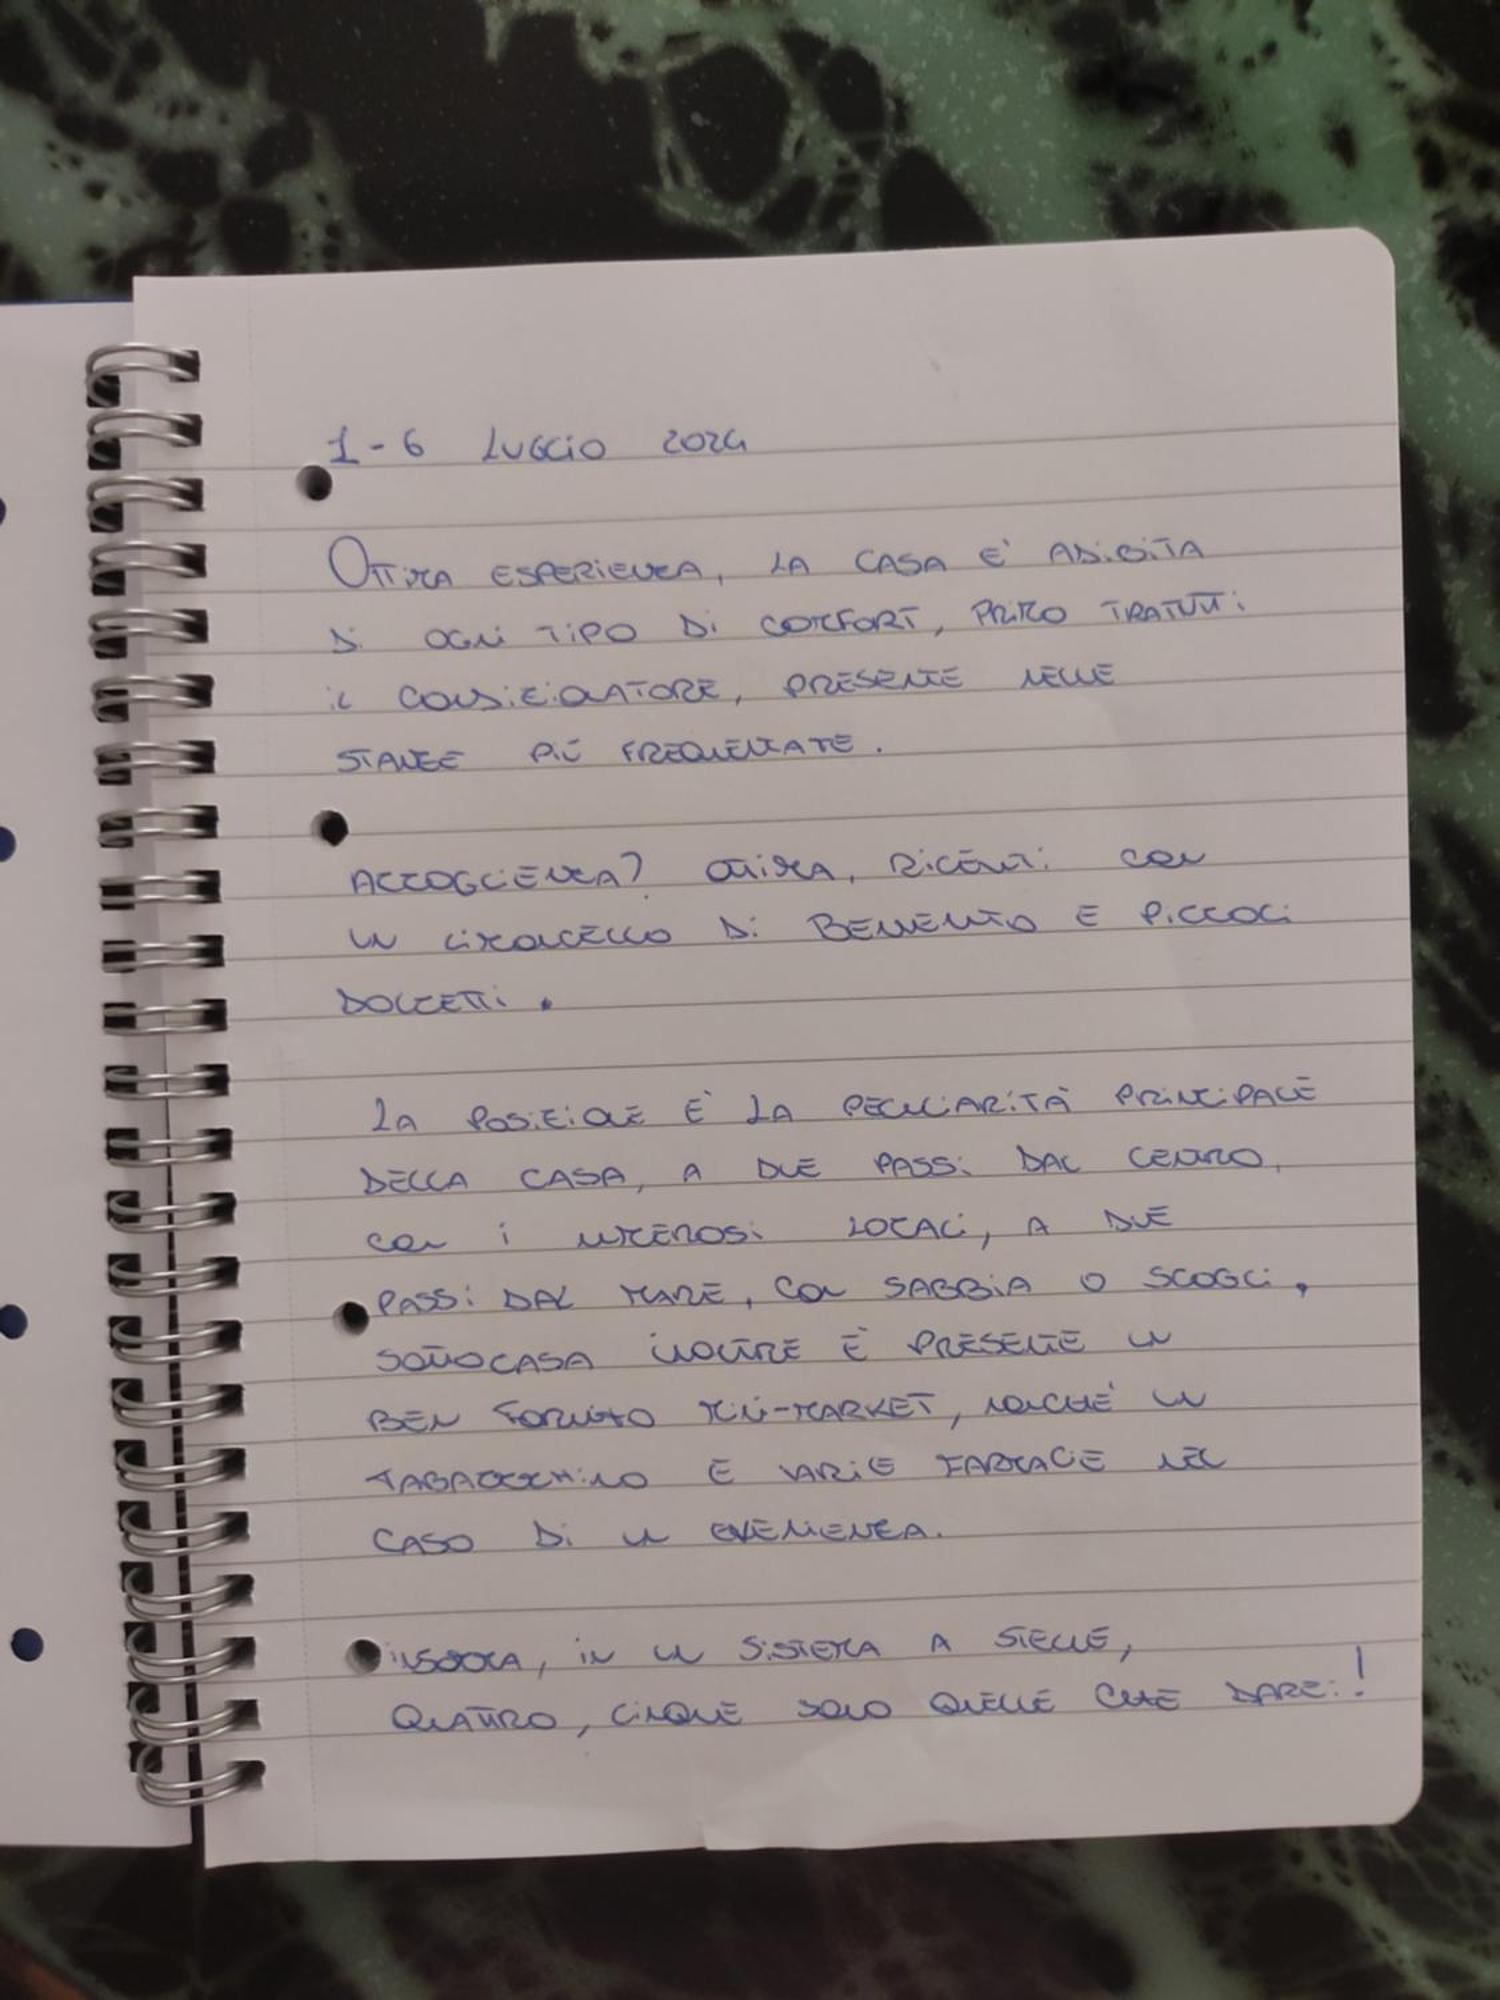 1-6 LUGLIO 2024
OTTIMA ESPERIENZA, LA CASA E' ADIBITA
DI OGNI TIPO DI COMFORT, PRIMO TRA TUTTI
IL CONDIZIONATORE, PRESENTE NELLE
STANZE PIÙ FREQUENTATE.
ACCOGLIENZA? OTTIMA, RICEVUTI CON
UN LIMONCELLO DI BENVENUTO E PICCOLI
DOLCETTI.
LA POSIZIONE E' LA PECULIARITÀ PRINCIPALE
DELLA CASA, A DUE PASSI DAL CENTRO,
CON I NUMEROSI LOCALI, A DUE
PASSI DAL MARE, CON SABBIA O SCOGLI,
SOTTOCASA INOLTRE È PRESENTE UN
BEN FORNITO MINI-MARKET, NONCHÉ UN
TABACCHINO E VARIE FARMACIE NEL
CASO DI UN EVENIENZA.
INSOMMA, IN UN SISTEMA A STELLE,
QUATTRO, CINQUE SONO QUELLE CHE DAREI!